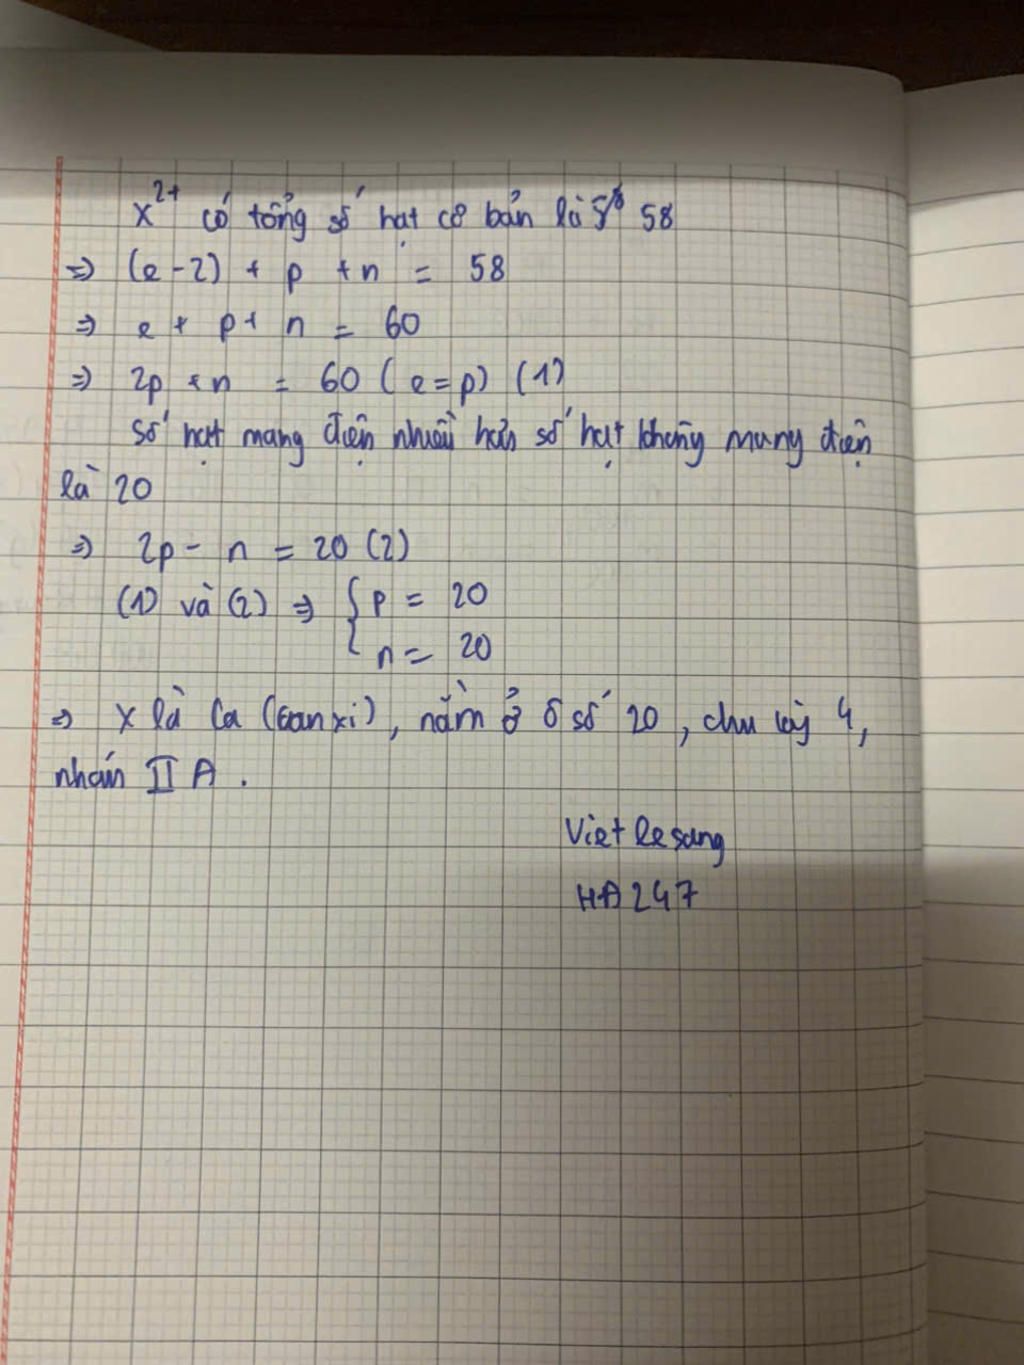 X²⁺ có tổng số hạt cơ bản là 58
⇒ (e-2) + p + n = 58
⇒ e + p + n = 60
⇒ 2p + n = 60 (e=p) (1)
Số hạt mang điện nhiều hơn số hạt không mang điện
là 20
⇒ 2p - n = 20 (2)
(1) và (2) ⇒ { p = 20
n = 20
⇒ X là Ca (Canxi), nằm ở ô số 20, chu kỳ 4,
nhóm II A.
Viet le sang
HA247